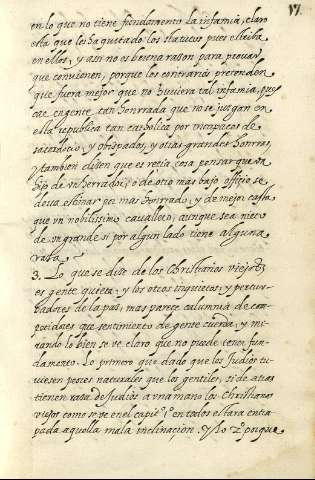 17.
en lo que no tiene fundamento la infamia, claro
esta que les ha quitado los statutos pues estriba
en ellos, y assi no es buena rason para provar
que convienen, porque los contrarios pretenden
que fuera mejor que no huviera tal infamia, pues
cae en gente tan honrrada que no se juzgan en
esta republica tan catholica por incapaces de
sacerdocio, y obispados, y otras grandes honrras,
y tambien dissen que es recia cosa pensar que un
hijo de un herrador, o de otro mas bajo officio se
deva estimar por mas honrrado, y de mejor casta
que un nobilissimo cavallero, aunque sea nieto
de un grande si por algun lado tiene alguna
rasa.
3. Lo que se dise de los Christianos viejos, q
es gente quieta, y los otros inquietos, y pertur-
badores de la pas, mas parece calumnia de
que sentimiento de gente cuerda, y mi-
rando lo bien se ve claro que no puede tener fun-
damento. Lo primero que dado que los Judios tu-
viesen peores naturales que los gentiles, si de atras
tienen rasa de Judios a una mano los Christianos
viejos como se ve en el cap. 1º en todos estara
pada aquella mala inclinacion. y lo 2º porque